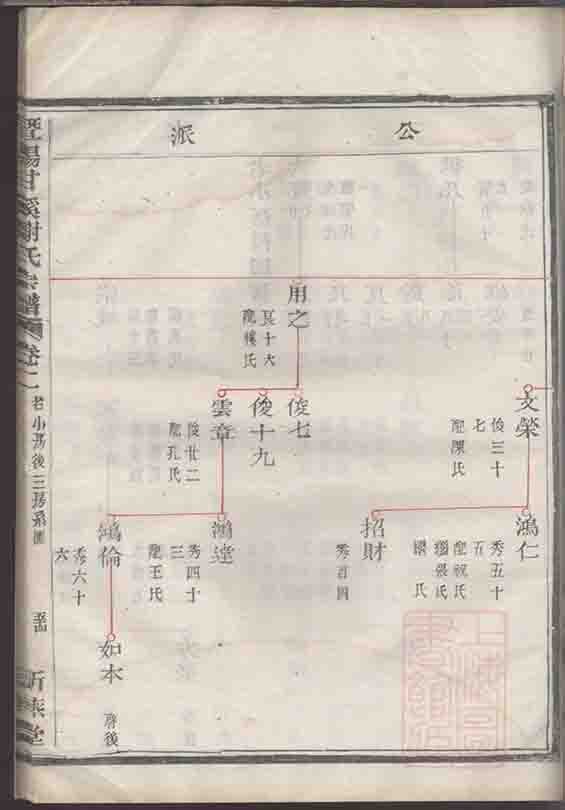 公
派
文榮
俊三十
七
配陳氏
鴻仁
秀五十
五
配祝氏
繼張氏
梁氏
招財
秀百四
用之
良十六
配樓氏
俊七
俊十九
雲章
俊廿二
配孔氏
鴻達
秀四十
三
配王氏
鴻倫
秀六十
六
如本
啓後
暨陽甘溪謝氏宗譜
卷二
老小房後三房系圖